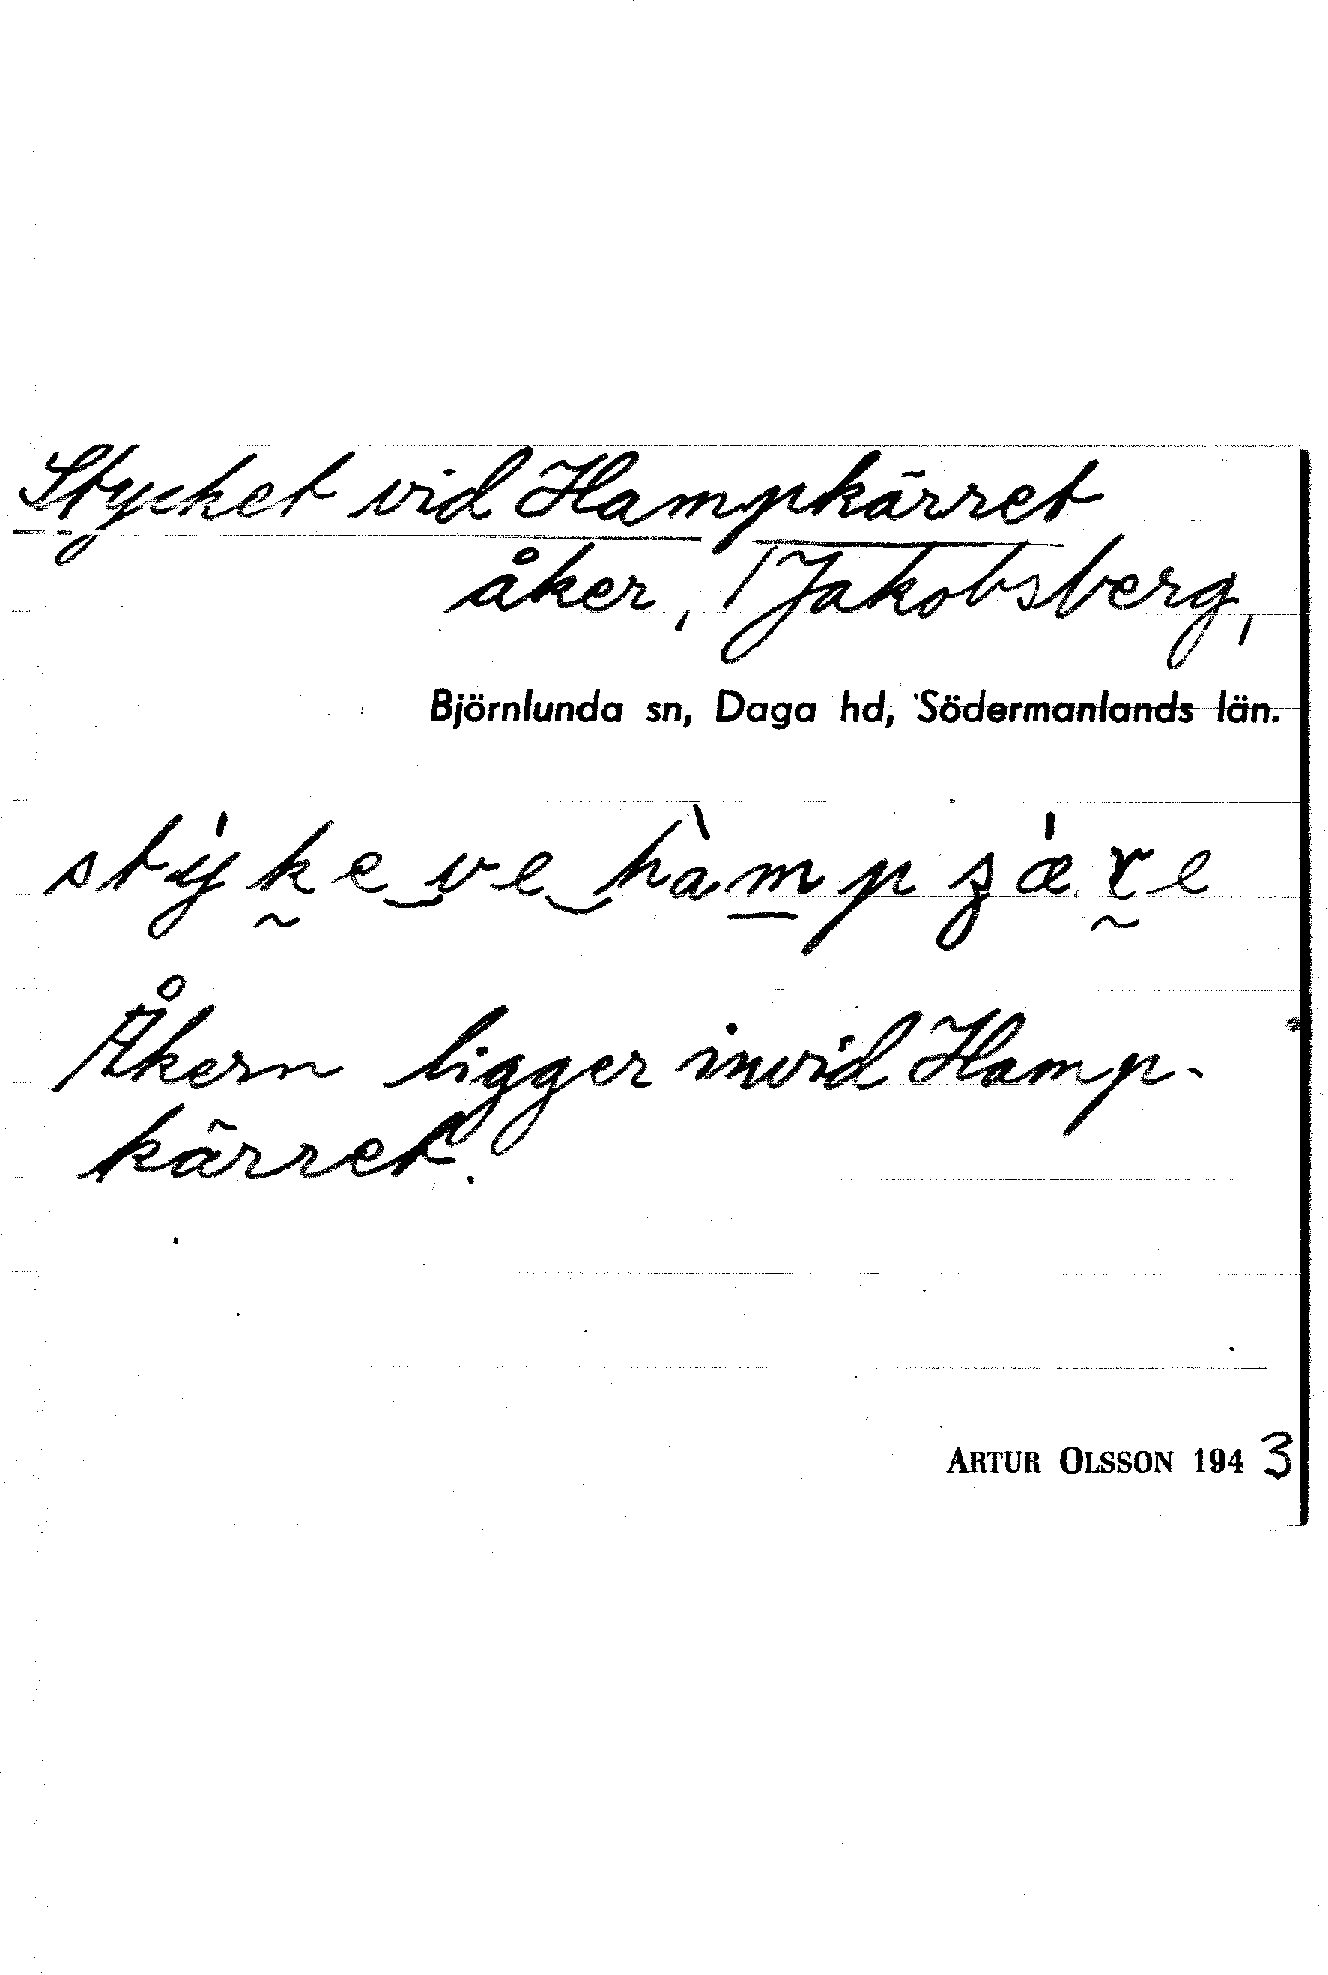 Stycket vid Hampkärret
åker, Jakobsberg,
Björnlunda sn, Daga hd, Södermanlands län.
stýk̰e‿ve‿hàm̱pʂǽr̰e
Åkern ligger invid Hamp-
kärret.
ARTUR OLSSON 1943